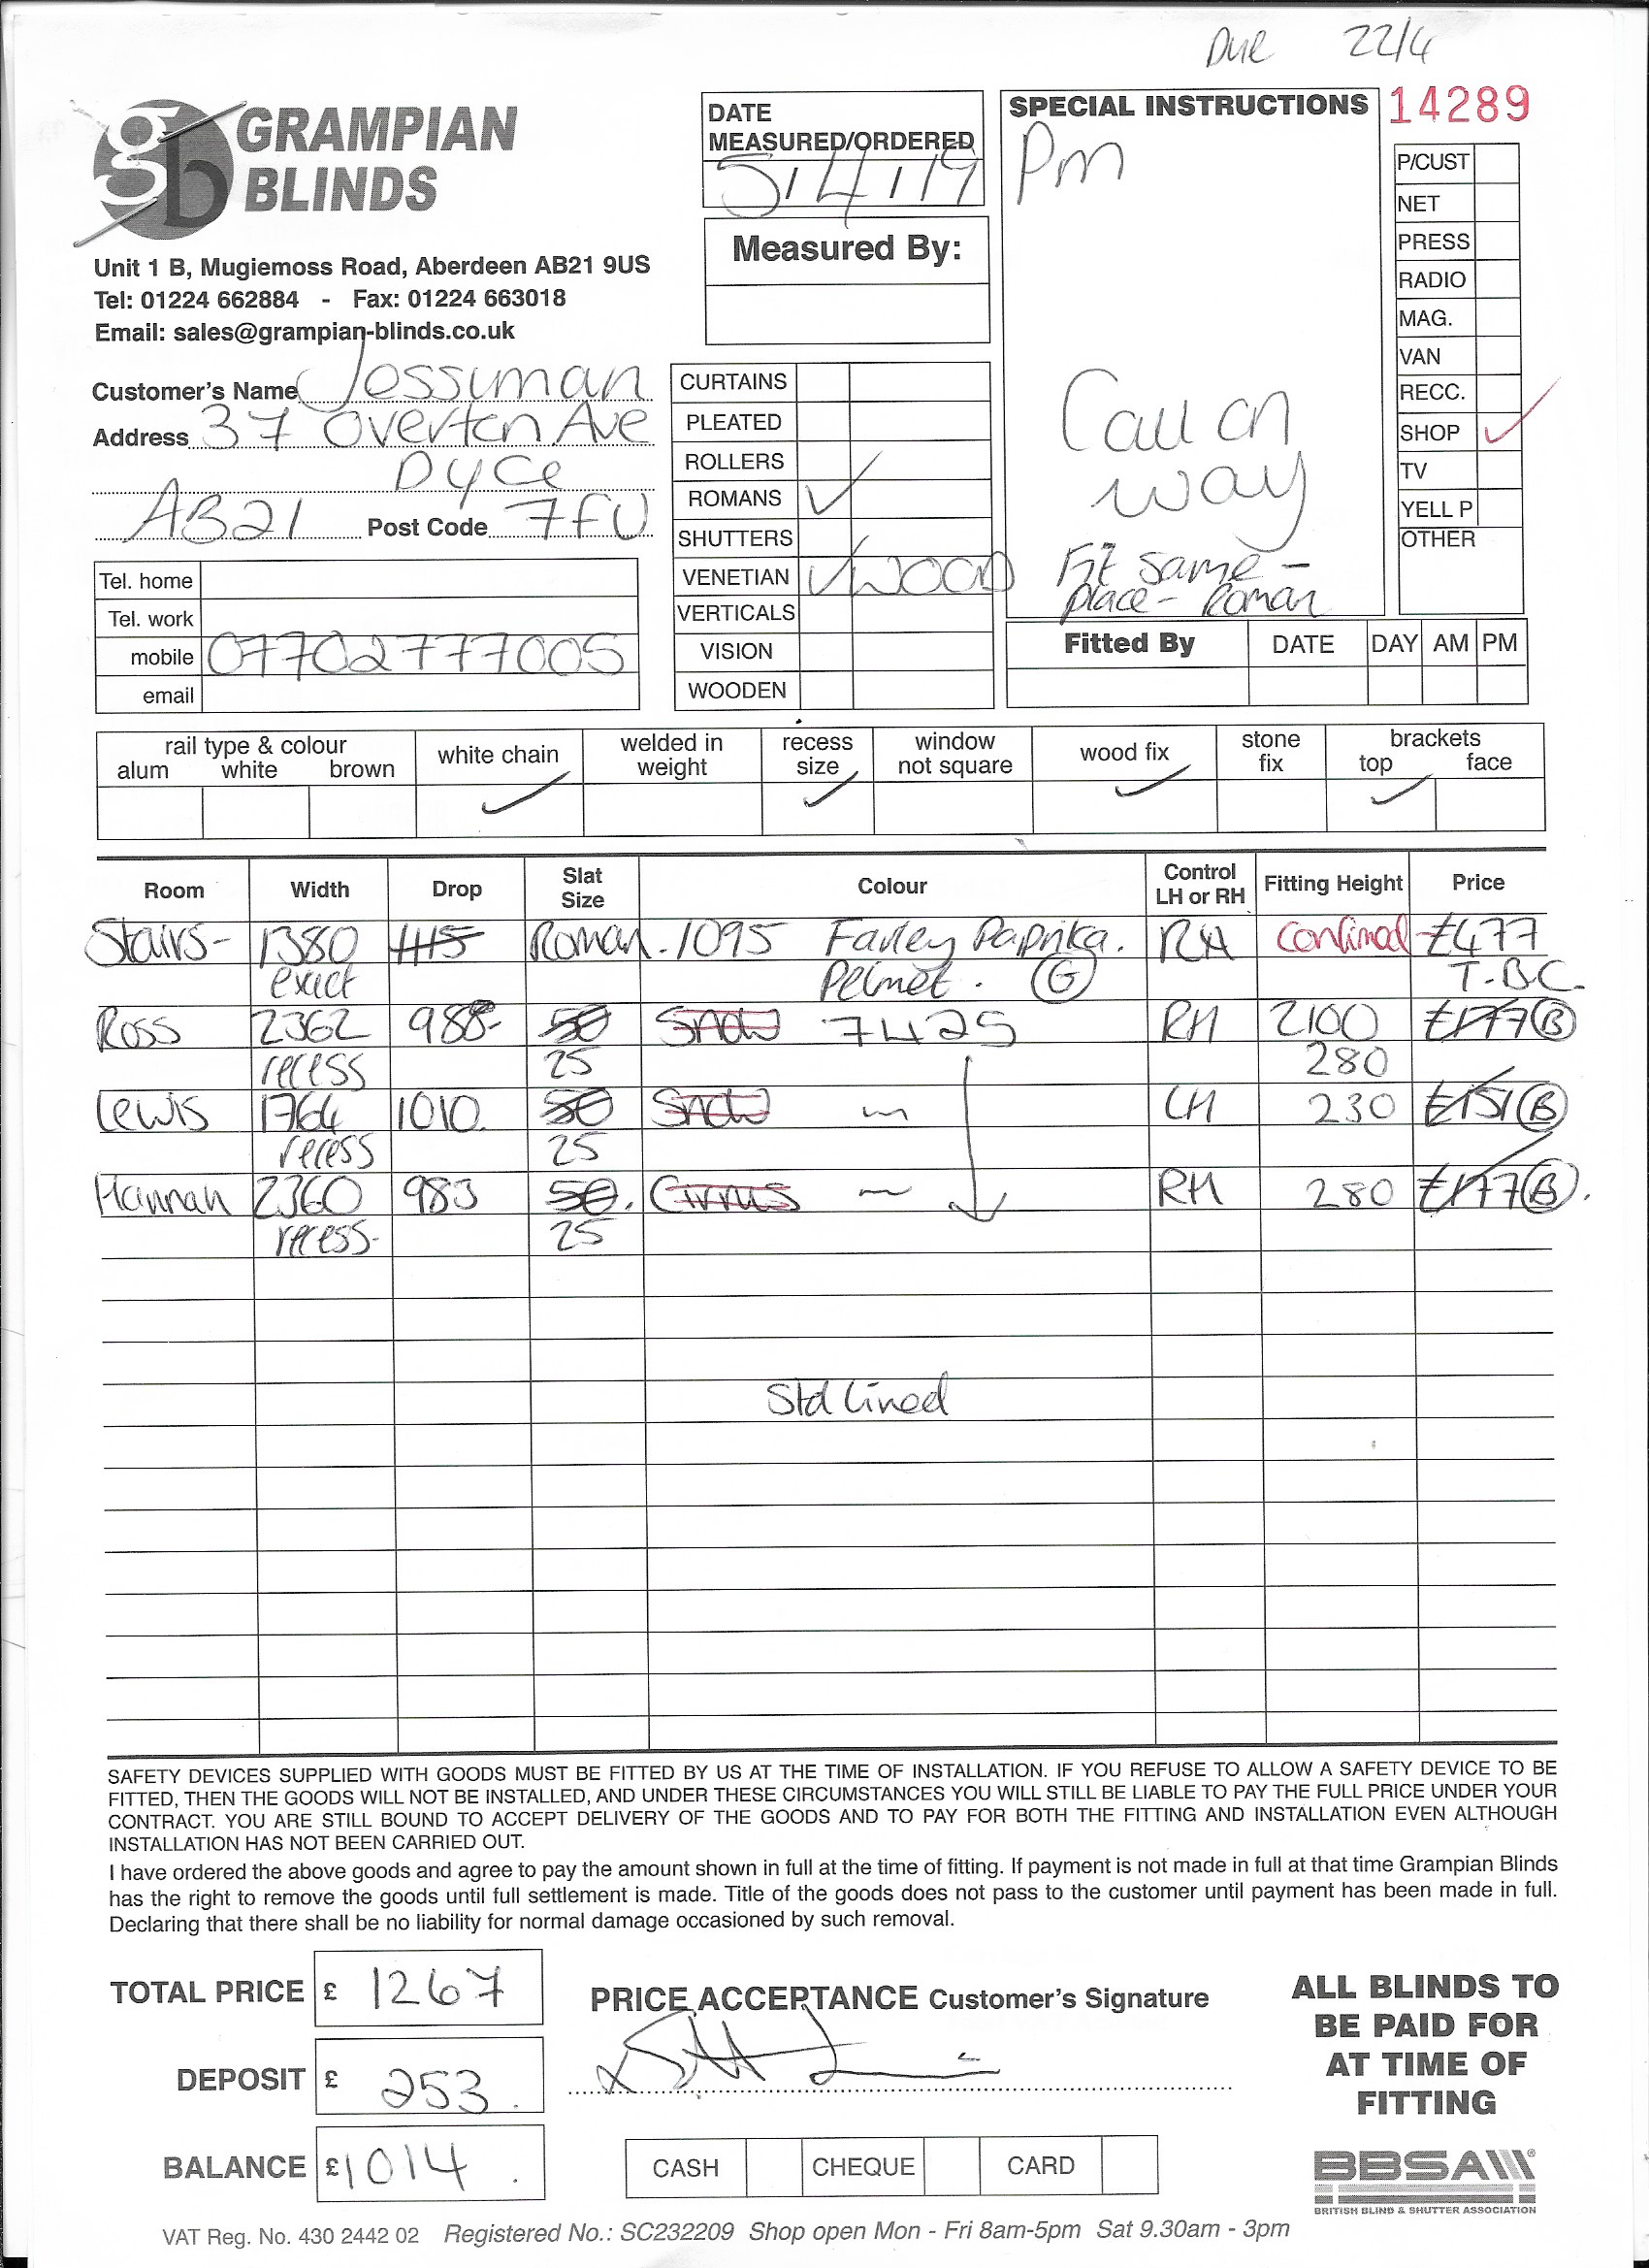 Due 22/4
GRAMPIAN
BLINDS
Unit 1 B, Mugiemoss Road, Aberdeen AB21 9US
Tel: 01224 662884 - Fax: 01224 663018
Email: sales@grampian-blinds.co.uk
Customer's Name Jessiman
Address 37 Overton Ave
Dyce
AB21 Post Code 7FU
Tel. home
Tel. work
mobile 07702777005
email
DATE
MEASURED/ORDERED
5/4/19
Measured By:
CURTAINS
PLEATED
ROLLERS
ROMANS ✓
SHUTTERS
VENETIAN ✓ WOOD
VERTICALS
VISION
WOODEN
SPECIAL INSTRUCTIONS
Pm
Call on
way
Fit same -
place - Roman
14289
P/CUST
NET
PRESS
RADIO
MAG.
VAN
RECC.
SHOP ✓
TV
YELL P
OTHER
Fitted By DATE DAY AM PM
rail type & colour
alum white brown
white chain ✓
welded in weight
recess size ✓
window not square
wood fix ✓
stone fix
brackets
top ✓ face
Room Width Drop Slat Size Colour Control LH or RH Fitting Height Price
Stairs- 1380 1115 Roman. 1095 Farley Paprika. RH Confirmed £477
exact Pelmet. G T.B.C.
Ross 2362 988- 50 Snow 7425 RH 2100 £177 B
recess 25 280
Lewis 1764 1010. 50 Snow LH 230 £151 B
recess 25
Hannah 2360 983 50. Cirrus RH 280 £177 B.
recess- 25
Std Lined
SAFETY DEVICES SUPPLIED WITH GOODS MUST BE FITTED BY US AT THE TIME OF INSTALLATION. IF YOU REFUSE TO ALLOW A SAFETY DEVICE TO BE
FITTED, THEN THE GOODS WILL NOT BE INSTALLED, AND UNDER THESE CIRCUMSTANCES YOU WILL STILL BE LIABLE TO PAY THE FULL PRICE UNDER YOUR
CONTRACT. YOU ARE STILL BOUND TO ACCEPT DELIVERY OF THE GOODS AND TO PAY FOR BOTH THE FITTING AND INSTALLATION EVEN ALTHOUGH
INSTALLATION HAS NOT BEEN CARRIED OUT.
I have ordered the above goods and agree to pay the amount shown in full at the time of fitting. If payment is not made in full at that time Grampian Blinds
has the right to remove the goods until full settlement is made. Title of the goods does not pass to the customer until payment has been made in full.
Declaring that there shall be no liability for normal damage occasioned by such removal.
TOTAL PRICE £ 1267
DEPOSIT £ 253.
BALANCE £1014.
PRICE ACCEPTANCE Customer's Signature
CASH CHEQUE CARD
ALL BLINDS TO
BE PAID FOR
AT TIME OF
FITTING
BBSA
BRITISH BLIND & SHUTTER ASSOCIATION
VAT Reg. No. 430 2442 02 Registered No.: SC232209 Shop open Mon - Fri 8am-5pm Sat 9.30am - 3pm